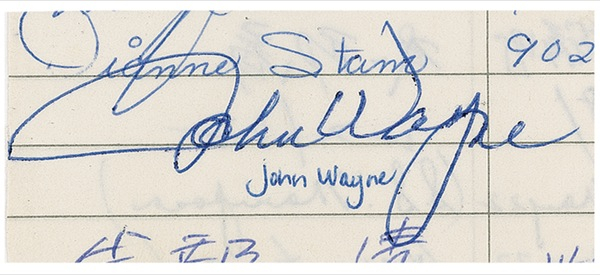 Dianne Stamp 902
John Wayne
John Wayne